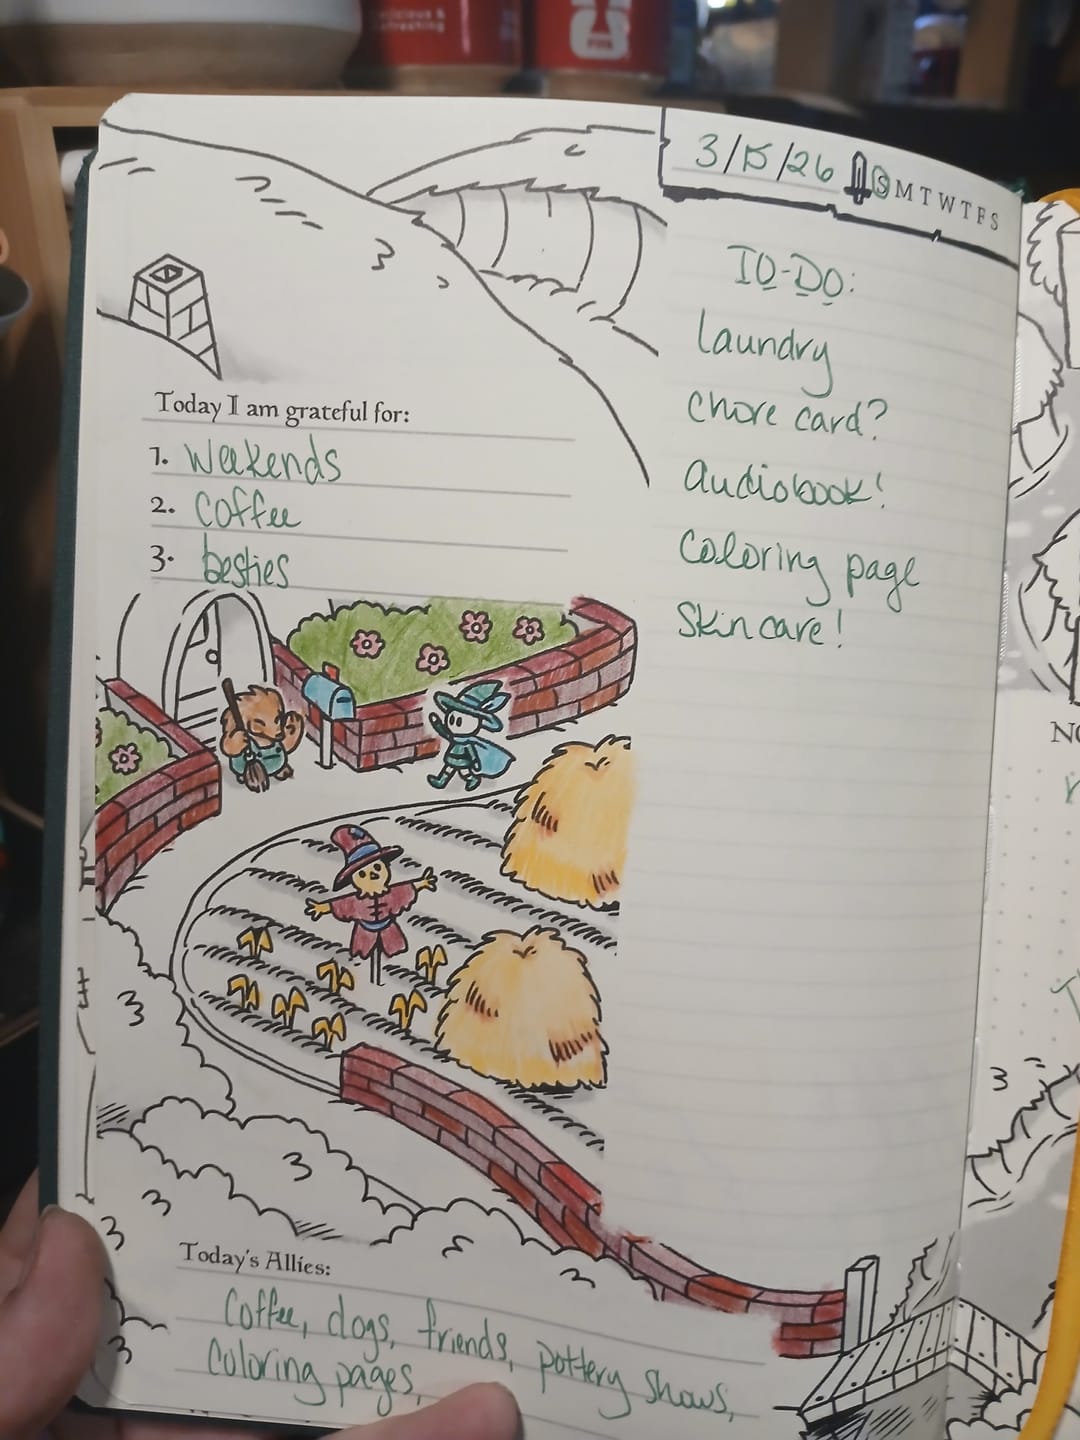 Delicious &
Refreshing
FIFA
3/15/26 S M T W T F S
TO-DO:
Laundry
Chore card?
Audiobook!
Coloring page
Skincare!
Today I am grateful for:
1. Weekends
2. Coffee
3. besties
Today's Allies:
Coffee, dogs, friends, pottery shows,
Coloring pages,